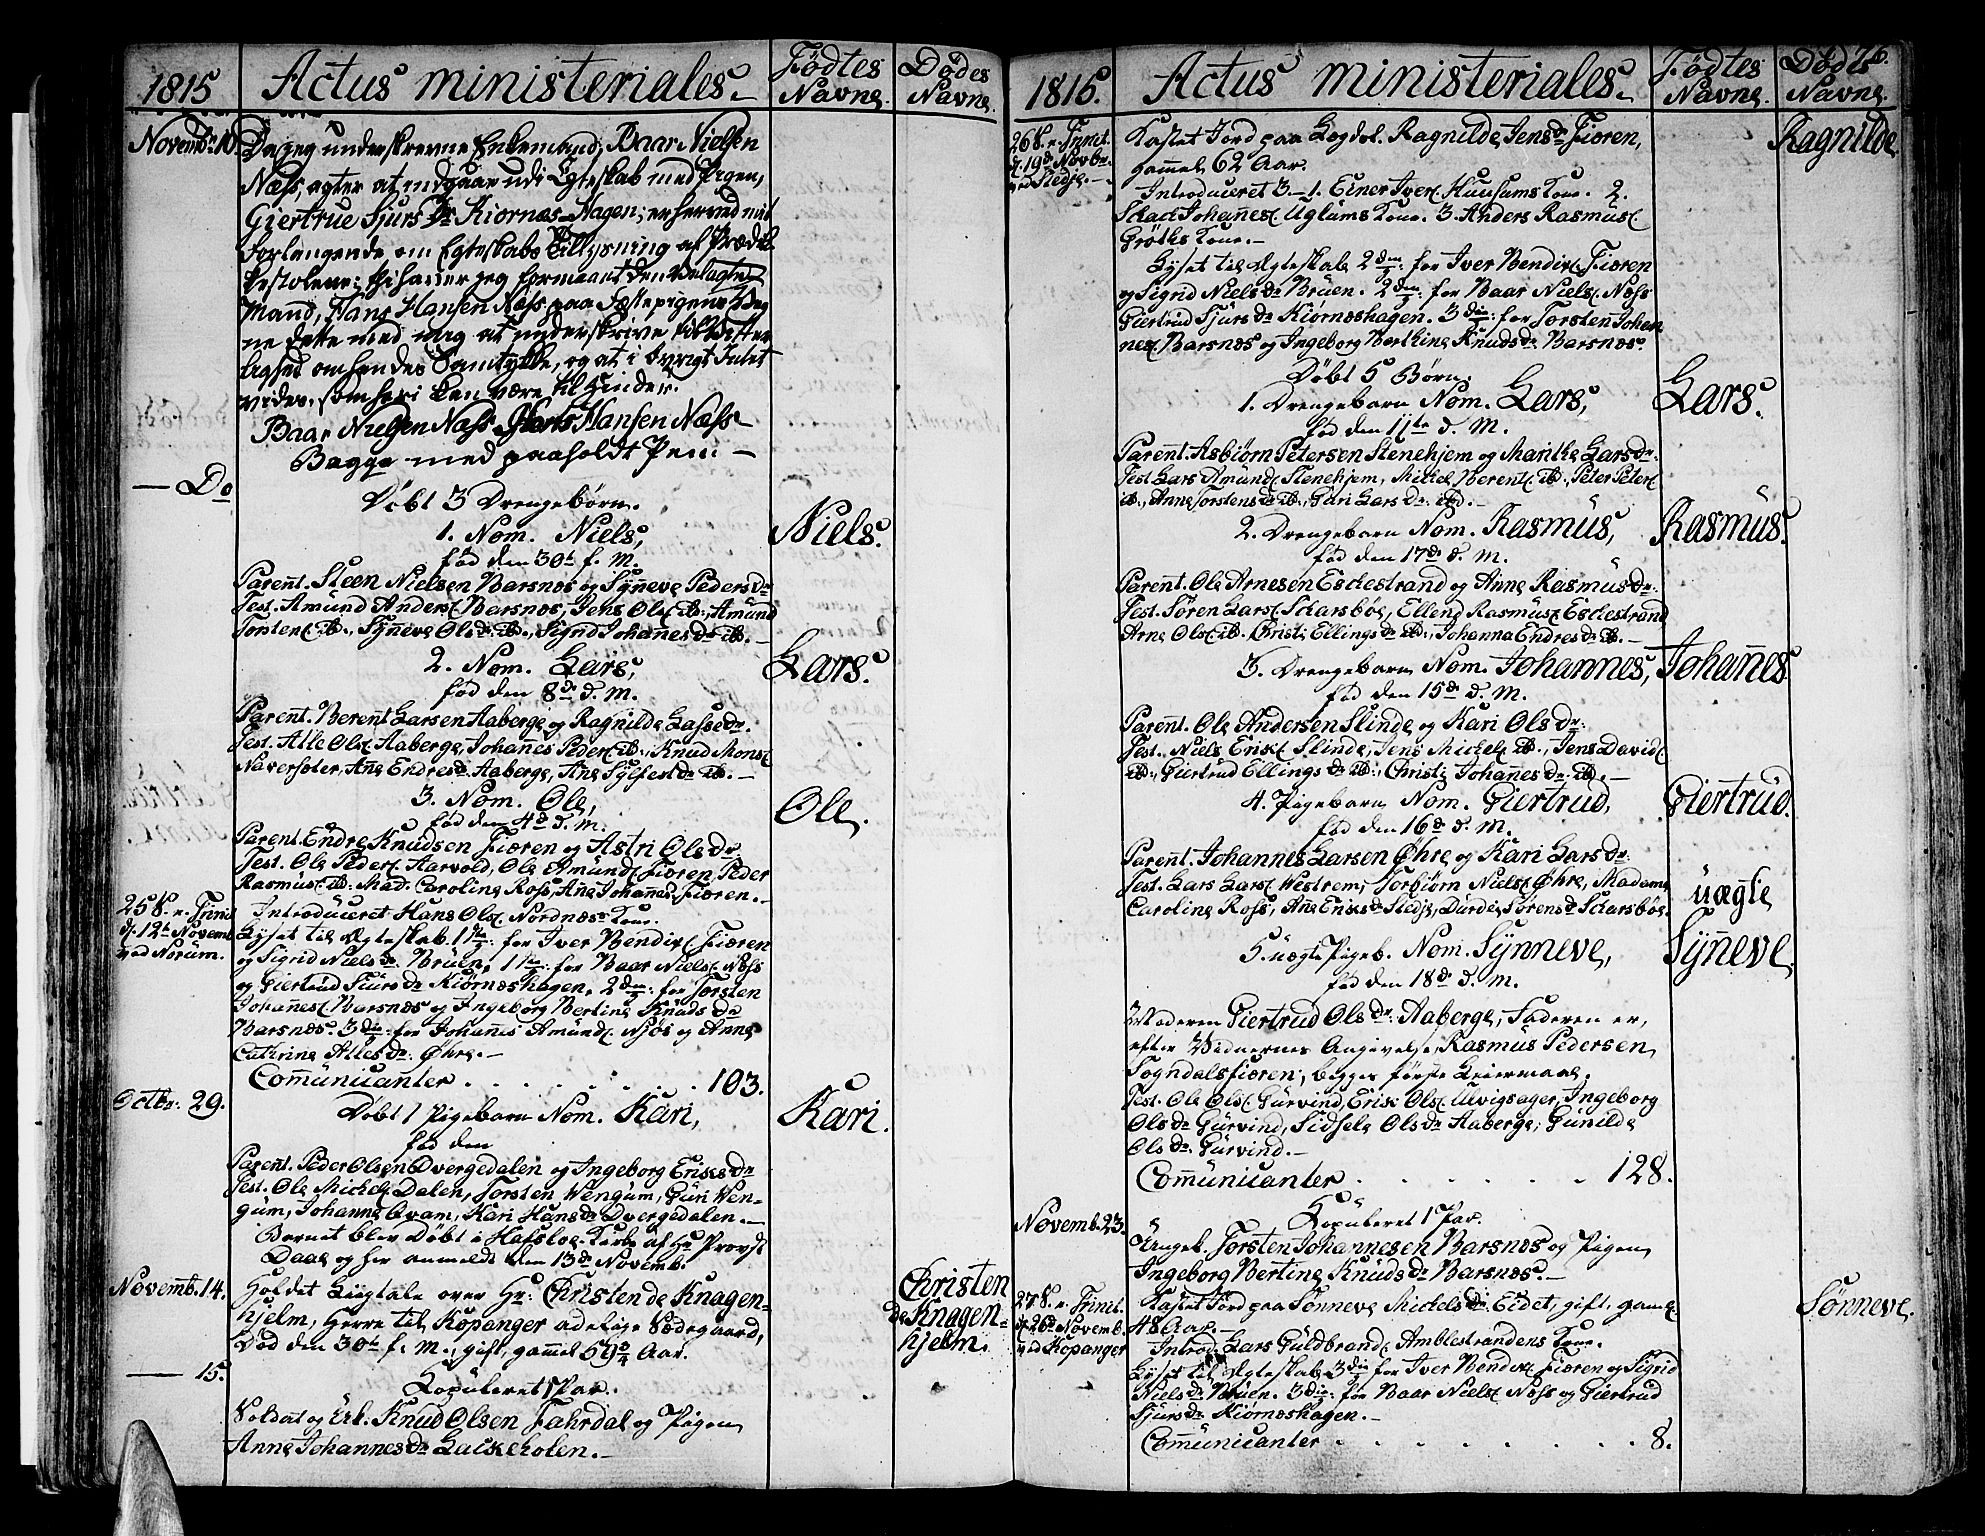 1815 Actus ministeriales. Fødtes Navne. Dødes Navne.
Novembr. 10. Da jeg underskrevne Enkemand, Baar Nielsen
Næss, agter at indgaae udi Egteskab med Pigen,
Giertrue Sjurs Dr. Kiornæs-Hagen; er herved mit
forlangende, om Egteskabs Tillysning af Prædik-
kestolene; thi haver jeg formaaet den
Mand, Hans Hansen Næss paa Fæstepigens Veg-
ne dette med mig at underskrive til Efterret-
lighed om hendes Samtykke, og at i øvrigt Intet
vides, som heri kan være til Hinder.
Baar Nielsen Næss Hans Hansen Næss
Begge med paaholdt Pen -
— Do
Døbt 3 Drengebørn.
1. Nom. Niels, Niels.
fød den 30te f. M.
Parent. Steen Nielsen Barsnæs og Synneve Peders dr
Test. Amund Anders. Barsnæs, Jens Ols. ib:, Amund
Torstens. ib., Synneve Ols dr. ib., Sigrid Johanes dr. ib. -
2. Nom. Lars, Lars.
fød den 8de d. M.
Parent. Berent Larsen Aaberge og Ragnilde Lasse dr.
Test. Atle Ols. Aaberge, Johannes Peders. ib., Knud Mons.
Naversoter, Ane Endres dr. Aaberge, Ane Sylfest dr. ib. -
3. Nom. Ole, Ole.
fød den 4de d. M.
Parent. Endre Knudsen Fiæren og Astri Ols dr
Test. Ole Peders. Aarvold, Ole Amund. Fiæren, Peder
Rasmus. ib. Mad. Caroline Ross, Ane Johannes. Fiæren. -
25 S. e. Trinit.
d. 12te Novemb.
ved Norum.
Introduceret Hans Ols. Nordnæs Kone.
Lyset til Ægteskab. 1ste: for Iver Bendix. Fiæren
og Sigrid Niels dr. Bruen. 1ste: for Baar Niels. Næss
og Giertrud Siurs dr. Kiørnæshagen. 2den: for Torsten
Johannes. Barsnæs og Ingeborg Bertine Knuds dr
Barsnæs. 3die: for Johannes Amund. Nysøs og Anne
Cathrine Atles dr: Øhre. -
Communicanter . . . . . . . 103.
Octbr: 29. Døbt 1 Pigebarn Nom. Kari, Kari.
fød den
Parent. Peder Olsen Dvergedalen og Ingeborg Erics dr
Test. Ole Michels. Dalen, Torsten Wengum, Guri Wen-
gum, Johanne Qvam, Kari Hans dr Dvergedalen. -
Barnet blev Døbt i Hafsloe Kirke af Hr Provst
Daae og her anmeldt den 13de Novemb.
Novemb. 14. Holdet Liigtale over Hr: Christen de Knagen-
hjelm, Herre til Kopanger adelige Sædegaard,
Død den 30te f. M., gift, gammel 59 3/4 Aar.
Christen
de Knagen-
hjelm.
— 15. Kopuleret 1 Par.
Soldat og Uk. Knud Olsen Fahrdal og Pigen
Anne Johannes dr -
1815. Actus ministeriales. Fødtes Navne. Dødes Navne. 76.
26 S. e. Trinit.
d. 19de Novbr.
ved Stedje. -
Kastet Jord paa Logdel. Ragnilde Jens dr. Fiæren, Ragnilde
gammel 62 Aar.
Introduceret 3. - 1. Einer Iver. Huusums Kone. 2.
Johanes. Uglums Kone. 3. Anders Rasmus.
Grøths Kone. -
Lyset til Ægteskab 2den: for Iver Bendix. Fiæren
og Sigrid Niels dr Bruen. 2den: for Baar Niels. Næss
Giertrud Sjurs dr Kiørnæshagen. 3die: for Torsten Johan-
nes. Barsnæs og Ingeborg Berthine Knuds dr Barsnæs.
Døbt 5 Børn.
1. Drengebarn Nom. Lars, Lars.
fød den 11te d. M.
Parent. Asbiørn Petersen Stenehjem og Marithe Lars dr.
Test. Lars Amund. Stenehjem, Michel Berent. ib., Peter Peter.
ib., Anne Torstens dr ib., Guri Lars dr: ibd. -
2. Drengebarn Nom. Rasmus, Rasmus.
fød den 17de d. M.
Parent. Ole Arnesen Eschestrand og Anne Rasmus dr:
Test. Søren Lars. Scharsbøe, Ellend Rasmus. Eschestrand
Arne Ols. ib. Christi Ellings dr ib:, Johanna Endres dr. ib. -
3. Drengebarn Nom. Johannes, Johannes.
fød den 15de d. M.
Parent. Ole Andersen Slinde og Kari Ols dr:
Test. Niels Erix. Slinde, Jens Michels. ib., Jens David.
ib., Giertrud Ellings dr ib:, Christi Johannes dr. ib. -
4. Pigebarn Nom. Giertrud, Giertrud.
fød den 16de d. M.
Parent. Johannes Larsen Øhre og Kari Lars dr:
Test. Lars Lars. Westrem, Torbiørn Niels. Øhre, Madame
Caroline Ross, Ane Erics dr Stedje, Dorde Sørens dr Scharsbøe.
uægte
5. uægte Pigeb. Nom. Synneve, Synneve.
fød den 18de d. M.
Moderen Giertrud Ols dr: Aaberge, Faderen er,
efter Vidnernes Angivelse, Rasmus Pedersen
Sogndalsfiæren; begges første Leiermaal.
Test. Ole Ols. Gurvind, Eric Ols. Ulvigsager, Ingeborg
Ols dr Gurvind, Sidsele Ols dr Aaberge, Gunilde
Ols dr. Gurvind. -
Communicanter . . . . . . 128.
Novemb. 23. Kopuleret 1 Par.
Ungk. Torsten Johannesen Barsnæs og Pigen
Ingeborg Bertine Knuds dr Barsnæs. -
27 S. e. Trinit.
d. 26de Novemb.
ved Kopanger
Kastet Jord paa Sønneve Michels dr. Eidet, gift, gam. Sønneve.
48 Aar. -
Introd. Lars Guldbrand. Amblestrandens Kone.
Lyset til Ægteskab 3die for Iver Bendix. Fiæren og Sigrid
Niels dr. Bruen. 3die: for Baar Niels. Næss og Giertrud
Sjurs dr. Kiørnæshagen. -
Communicanter . . . . . . . . . 8.